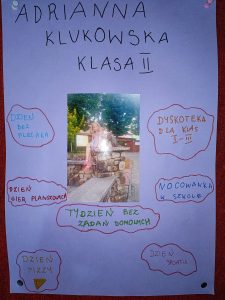 ADRIANNA
KLUKOWSKA
KLASA II
DZIEŃ
BEZ
PLECAKA
DYSKOTEKA
DLA KLAS
I-III
DZIEŃ
GIER PLANSZOWYCH
NOCOWANKA
W SZKOLE
TYDZIEŃ BEZ
ZADAŃ DOMOWYCH
DZIEŃ
PIZZY
DZIEŃ
SPORTU